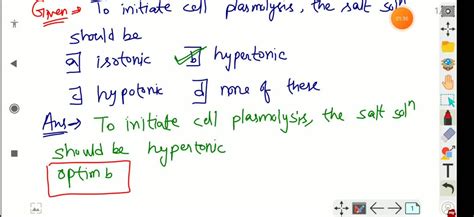 Given → To initiate cell plasmolysis, the salt solⁿ
should be
a isotonic b hypertonic
c hypotonic d none of these
Ans → To initiate cell plasmolysis, the salt solⁿ
should be hypertonic
option b
T
1